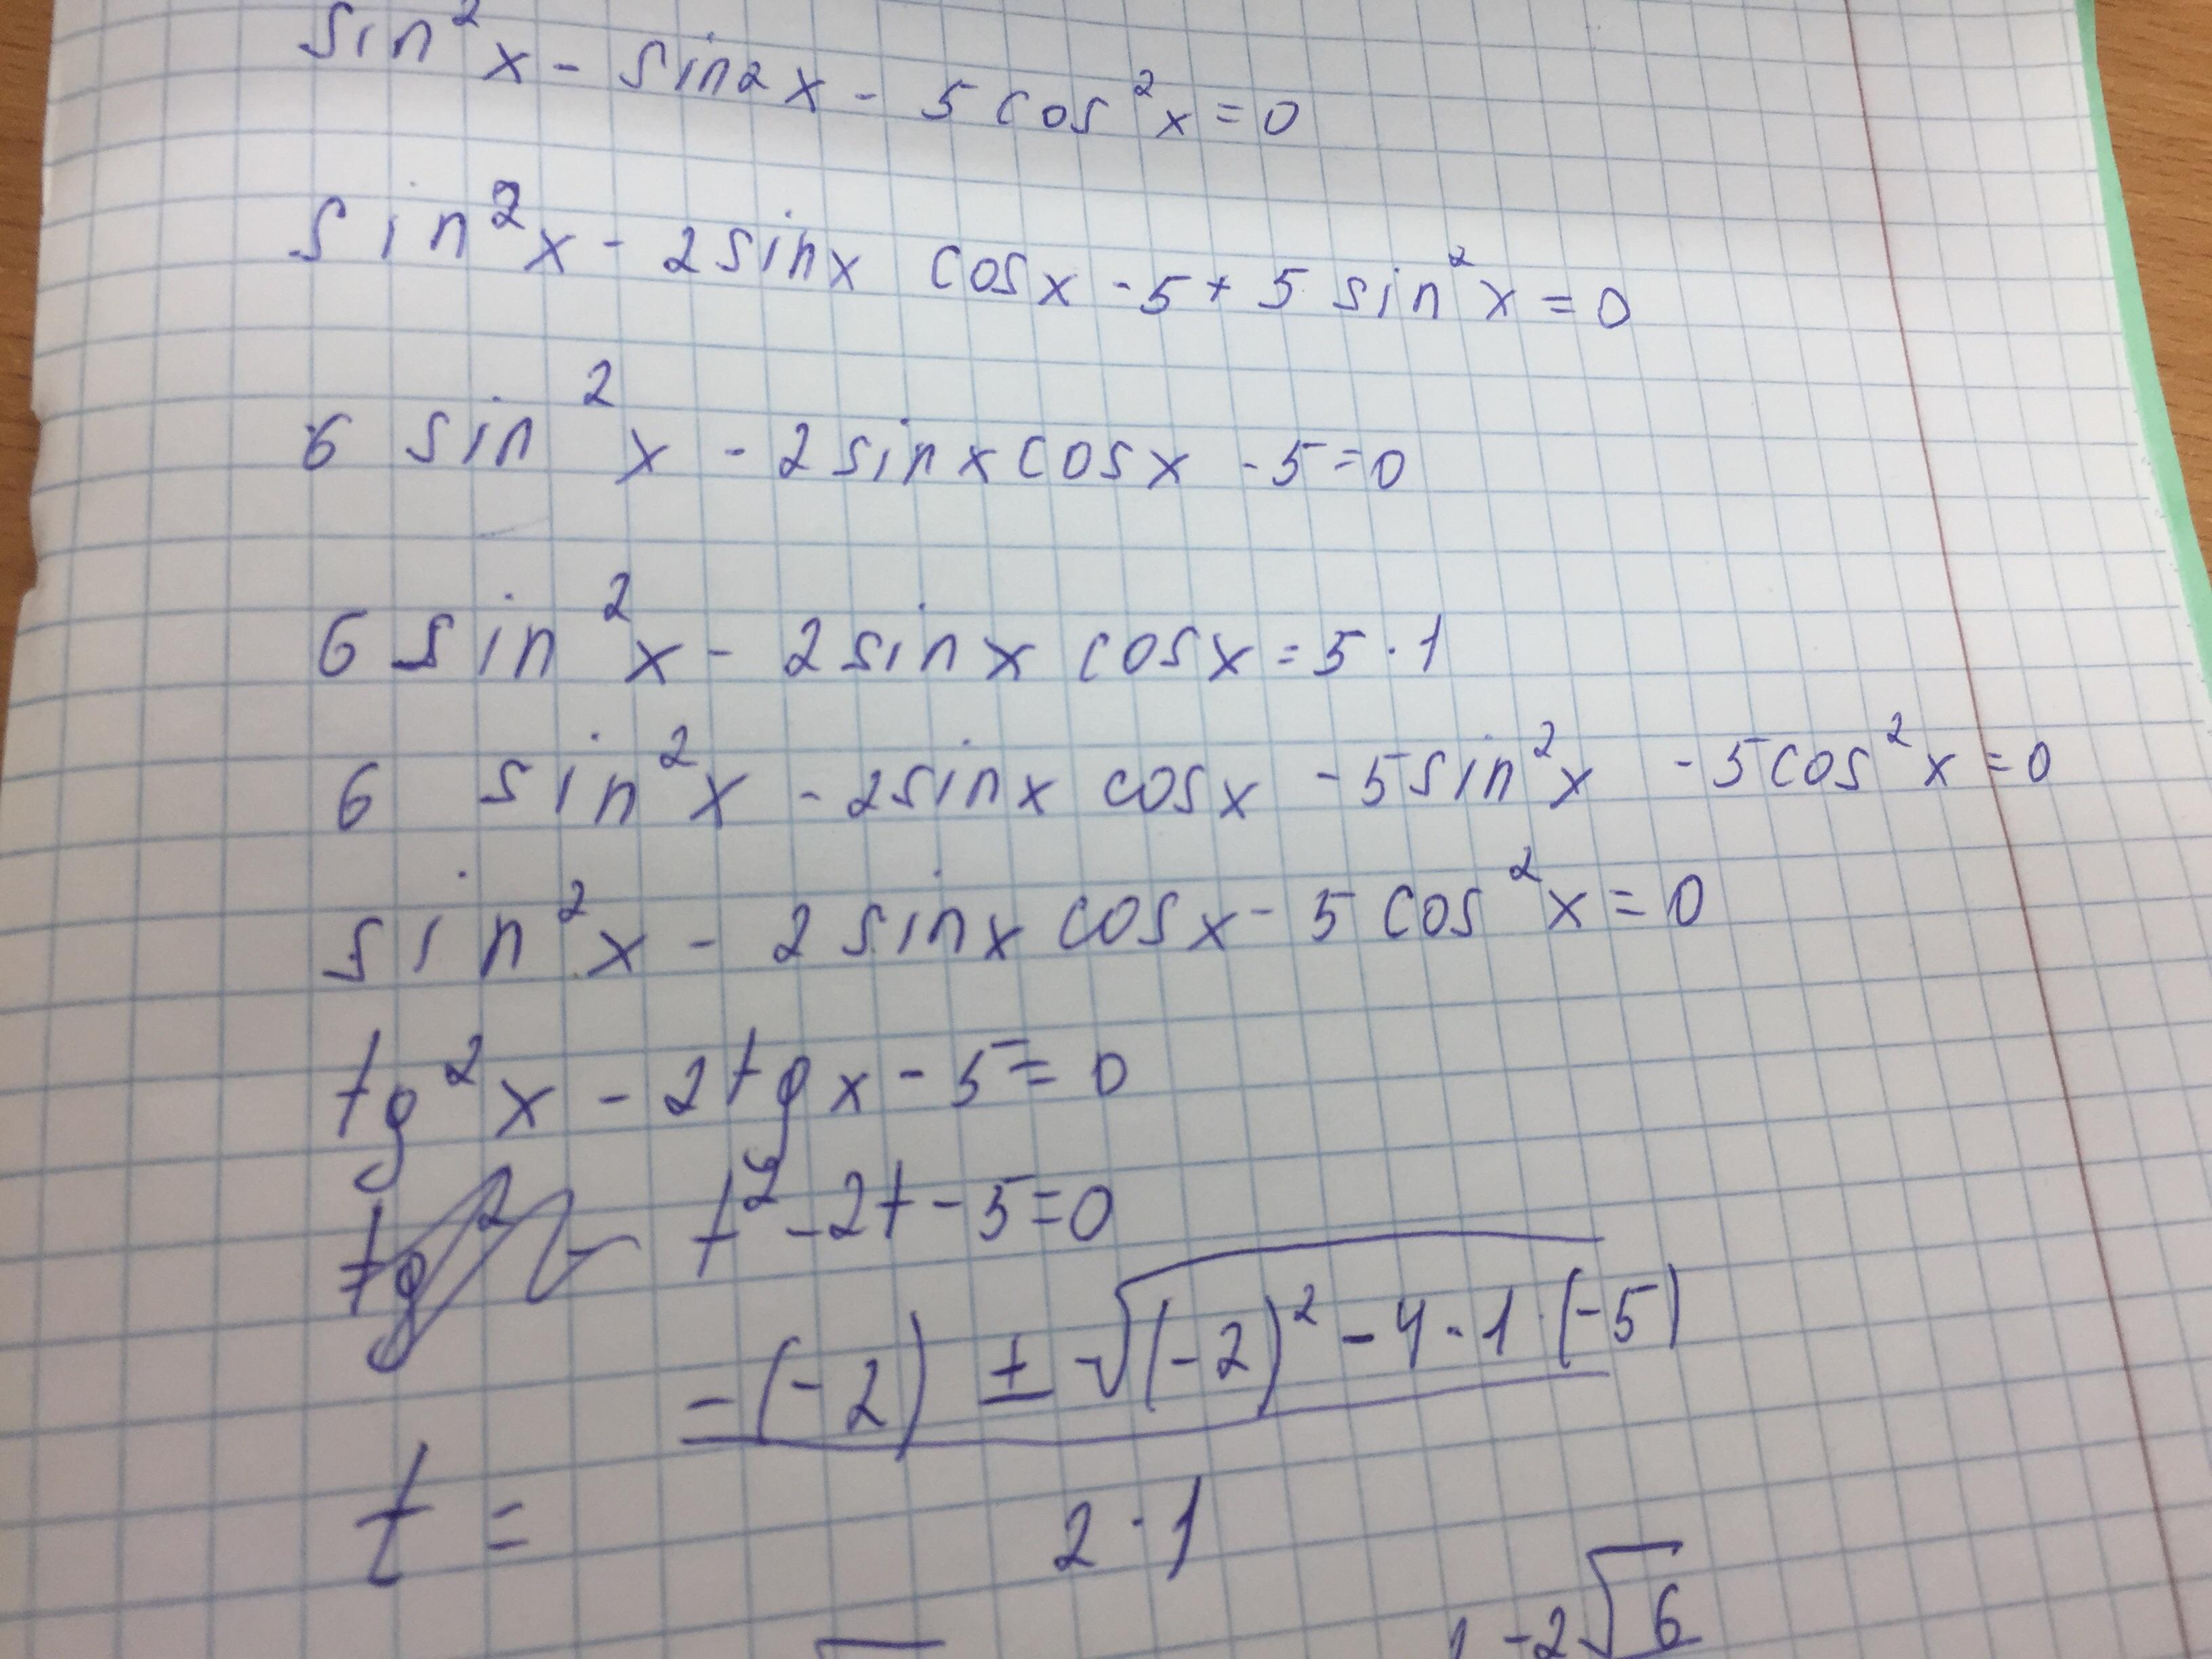 sin²x - sin2x - 5cos²x = 0
sin²x - 2sinx cosx - 5 + 5 sin²x = 0
6 sin²x - 2sinx cosx - 5 = 0
6 sin²x - 2sinx cosx = 5 · 1
6 sin²x - 2sinx cosx - 5sin²x - 5cos²x = 0
sin²x - 2sinx cosx - 5cos²x = 0
tg²x - 2tgx - 5 = 0
t² - 2t - 5 = 0
t = (-(-2) ± √((-2)² - 4 · 1 · (-5))) / (2 · 1)
-2√6